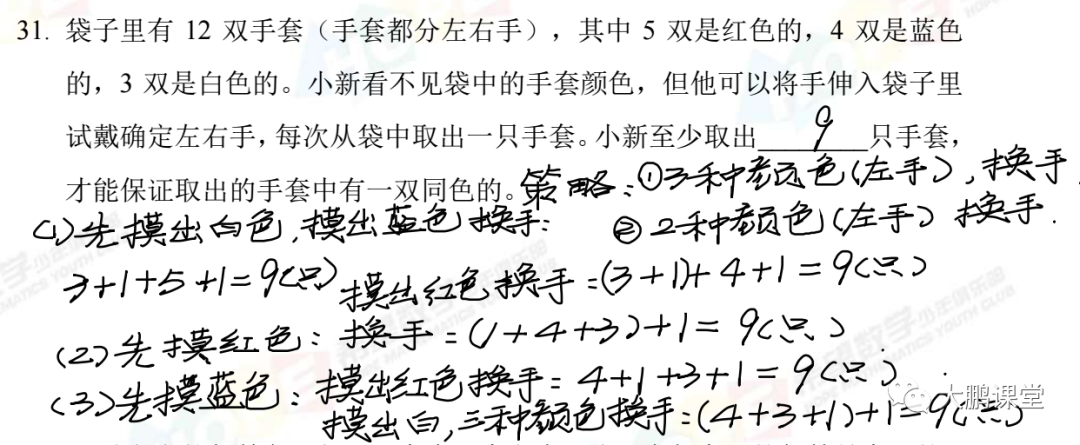 31. 袋子里有 12 双手套（手套都分左右手），其中 5 双是红色的，4 双是蓝色
的，3 双是白色的。小新看不见袋中的手套颜色，但他可以将手伸入袋子里
试戴确定左右手，每次从袋中取出一只手套。小新至少取出 9 只手套，
才能保证取出的手套中有一双同色的。策略：①3种颜色(左手)，换手
(1)先摸出白色，摸出蓝色换手： ②2种颜色(左手) 换手.
3+1+5+1=9(只) 摸出红色换手=(3+1)+4+1=9(只)
(2)先摸红色：换手=(1+4+3)+1=9(只)
(3)先摸蓝色：摸出红色换手=4+1+3+1=9(只)
摸出白,三种颜色换手:(4+3+1)+1=9(只)
大鹏课堂